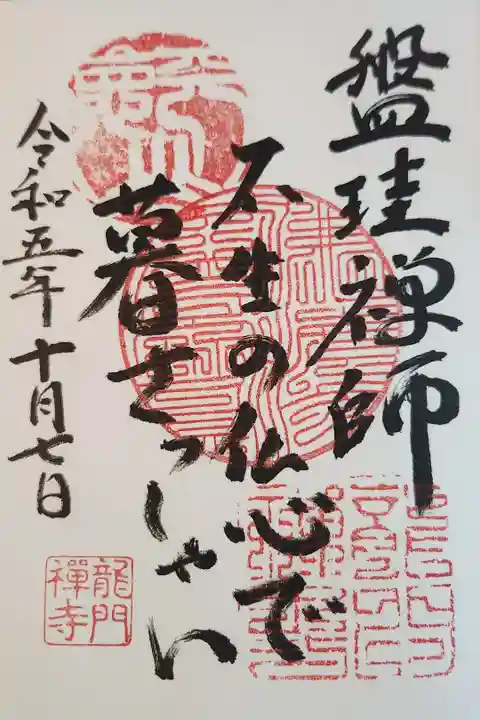 盤珪禅師
不生の仏心で
暮さっしゃい
令和五年十月七日
龍門
禅寺